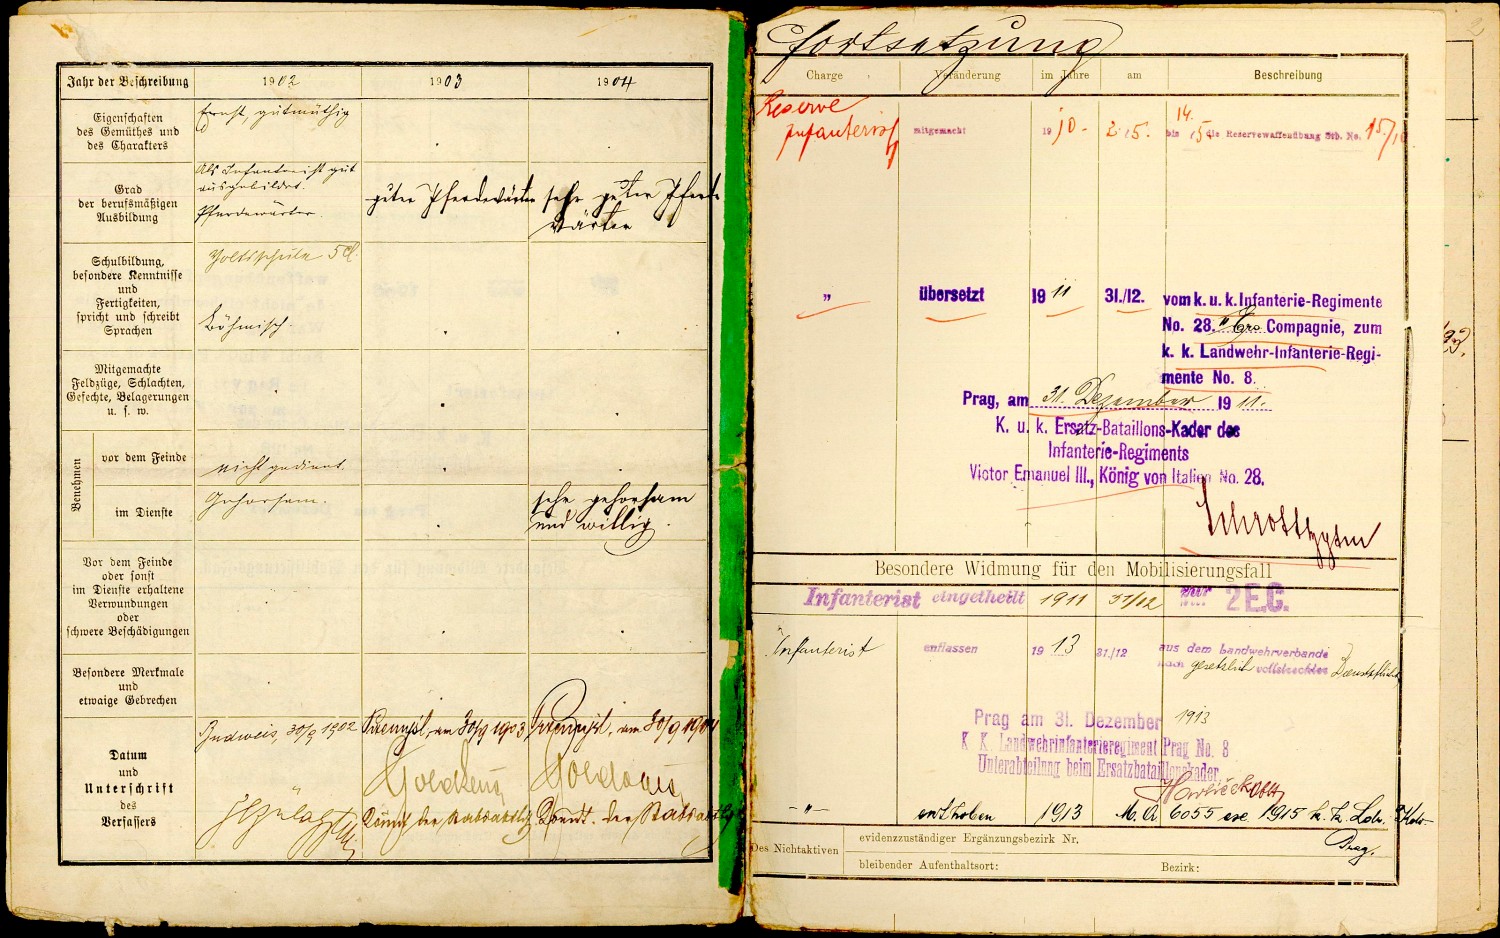 Jahr der Beschreibung
1902
1903
1904
Eigenschaften
des Gemüthes und
des Charakters
Ernst, gutmüthig
Grad
der berufsmäßigen
Ausbildung
Als Infanterist gut
ausgebildet.
Pferdewärter.
guter Pferdewärter
sehr guter Pferde
wärter
Schulbildung,
besondere Kenntnisse
und
Fertigkeiten,
spricht und schreibt
Sprachen
Volksschule 5 Cl.
Böhmisch.
Mitgemachte
Feldzüge, Schlachten,
Gefechte, Belagerungen
u. s. w.
Benehmen
vor dem Feinde
nicht gedient.
im Dienste
Gehorsam.
sehr gehorsam
und willig.
Vor dem Feinde
oder sonst
im Dienste erhaltene
Verwundungen
oder
schwere Beschädigungen
Besondere Merkmale
und
etwaige Gebrechen
Datum
und
Unterschrift
des
Verfassers
Budweis, 30/9 1902
Przemysl, am 30/9 1903
Przemysl, am 30/9 1904
Fortsetzung
Charge
Veränderung
im Jahre
am
Beschreibung
Reserve
Infanterist
mitgemacht
1910.
2.5.
14.
bis 5 die Reservewaffenübung Grb. No. 15/10
"
übersetzt
1911
31./12.
vom k. u. k. Infanterie-Regimente
No. 28. Compagnie, zum
k. k. Landwehr-Infanterie-Regi-
mente No. 8.
Prag, am 31. Dezember 1911.
K. u. k. Ersatz-Bataillons-Kader des
Infanterie-Regiments
Victor Emanuel III., König von Italien No. 28.
Besondere Widmung für den Mobilisierungsfall
Infanterist eingetheilt 1911 31/12 zur 2 E.C.
Infanterist
entlassen
1913
31./12
aus dem Landwehrverbande
nach gesetzlich vollstreckter Dienstpflicht
Prag am 31. Dezember 1913
K. K. Landwehrinfanterieregiment Prag No. 8
Unterabteilung beim Ersatzbataillonskader
-"-
enthoben
1913
M. A. 6055 1915 k. k.
Prag.
Des Nichtaktiven
evidenzzuständiger Ergänzungsbezirk Nr.
bleibender Aufenthaltsort:
Bezirk: